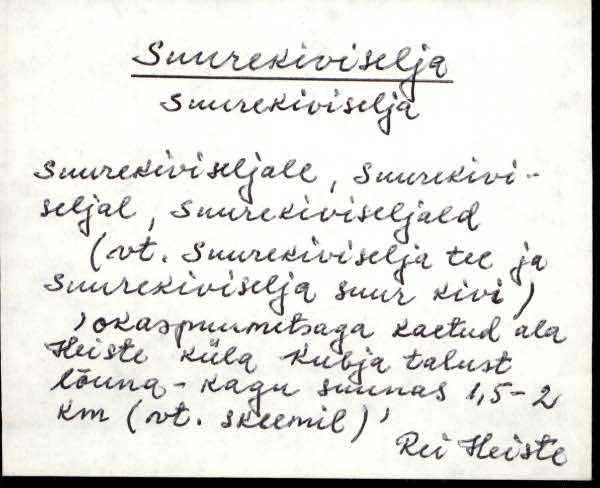 Suurekiviselja
Suurekiviselja
Suurekiviseljale, Suurekivi-
seljal, Suurekiviseljald
(vt. Suurekiviselja tee ja
Suurekiviselja suur kivi)
, okaspuumetsaga kaetud ala
Heiste küla Kubja talust
lõuna-kagu suunas 1,5-2
km (vt. skeemil) '
Rei Heiste